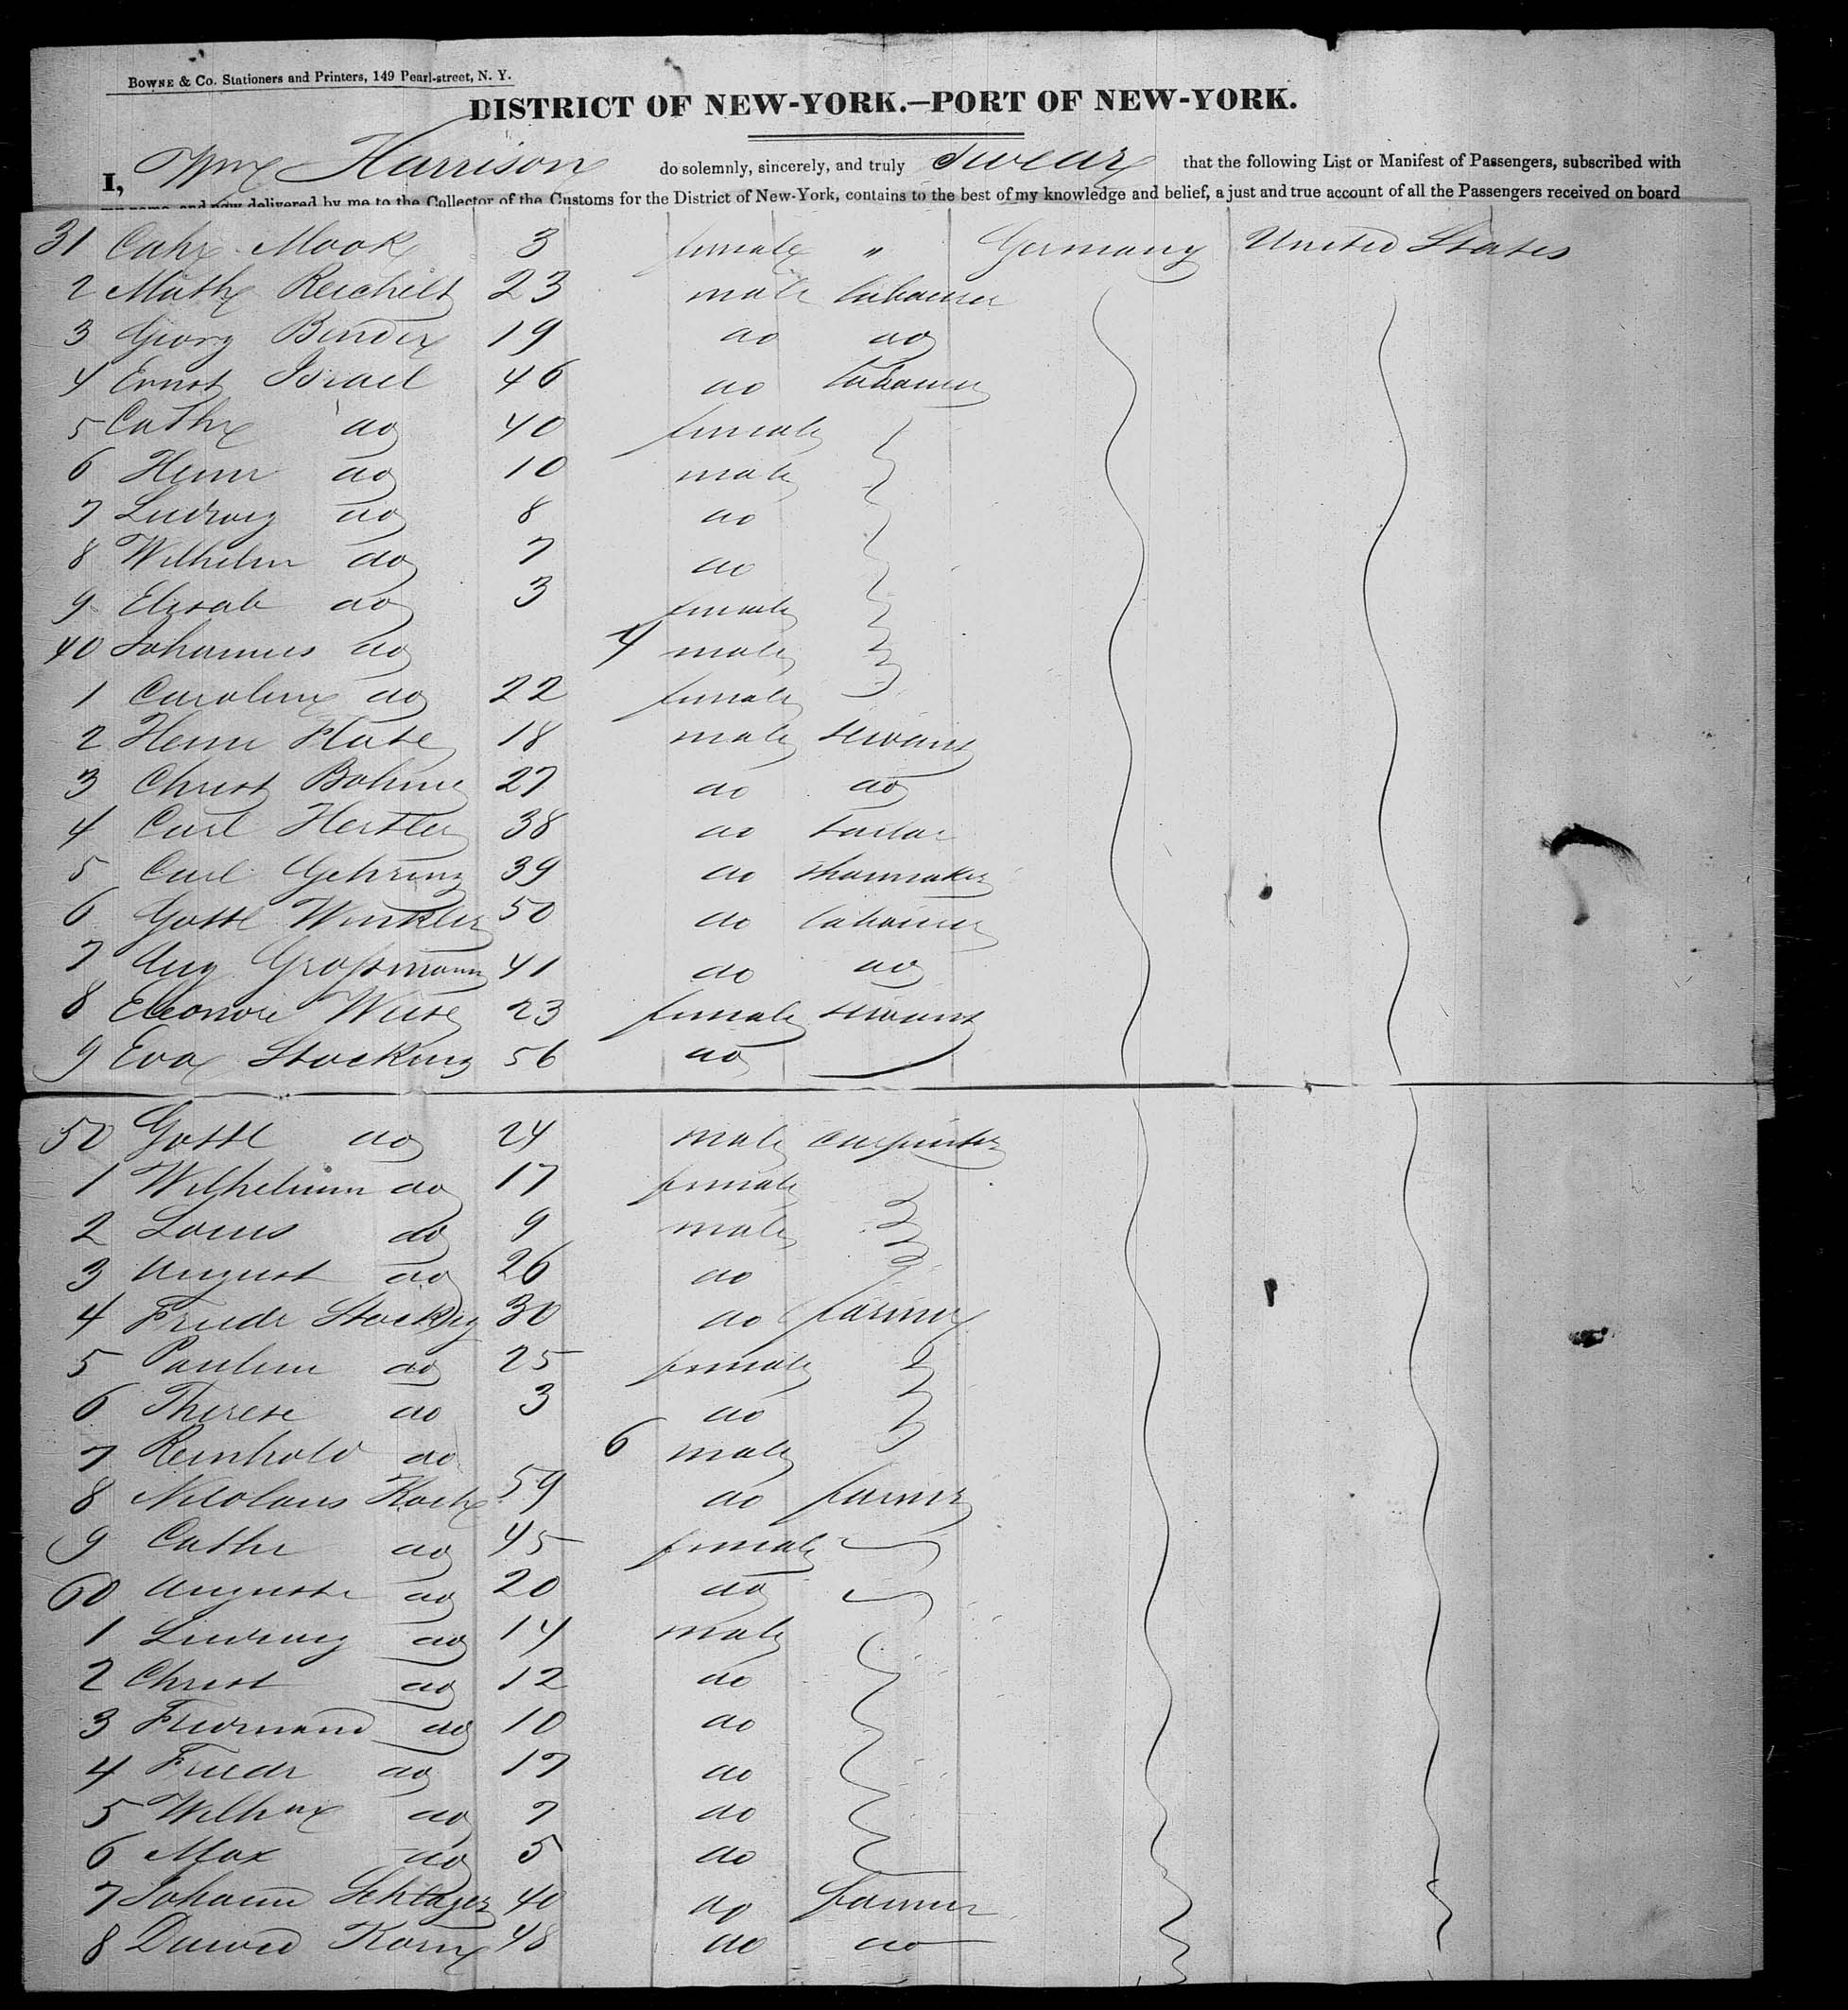 BOWNE & CO. Stationers and Printers, 149 Pearl-street, N. Y.
DISTRICT OF NEW-YORK.—PORT OF NEW-YORK.
I, Wm Harrison do solemnly, sincerely, and truly Swear that the following List or Manifest of Passengers, subscribed with
my name, and now delivered by me to the Collector of the Customs for the District of New-York, contains to the best of my knowledge and belief, a just and true account of all the Passengers received on board
31 Cath Mook 3 female " Germany United States
2 Math Reichelt 23 male labourer
3 Georg Binder 19 do do
4 Ernst Israel 46 do labourer
5 Cath do 40 female
6 Heinr do 10 male
7 Ludwig do 8 do
8 Wilhelm do 7 do
9 Elisab do 3 female
40 Johannes do 4 male
1 Caroline do 22 female
2 Heinr 18 male servant
3 Christ Bohme 27 do do
4 Carl Hertler 38 do tailor
5 Carl Gehring 39 do shoemaker
6 Gottl Winkler 50 do labourer
7 Aug Großmann 41 do do
8 Eleonore Weise 23 female servant
9 Eva Stocking 56 do
50 Gottl do 24 male carpenter
1 Wilhelmin do 17 female
2 Louis do 9 male
3 August do 26 do
4 Friedr Stockig 30 do farmer
5 Paulin do 25 female
6 Therese do 3 do
7 Reinhold do 6 male
8 Nicolaus Koch 59 do farmer
9 Cathr do 45 female
60 Auguste do 20 do
1 Ludwig do 14 male
2 Christ do 12 do
3 Ferdinand do 10 do
4 Friedr do 17 do
5 Wilhm do 7 do
6 Max do 5 do
7 Johann Schlager 40 do farmer
8 David Korn 48 do do